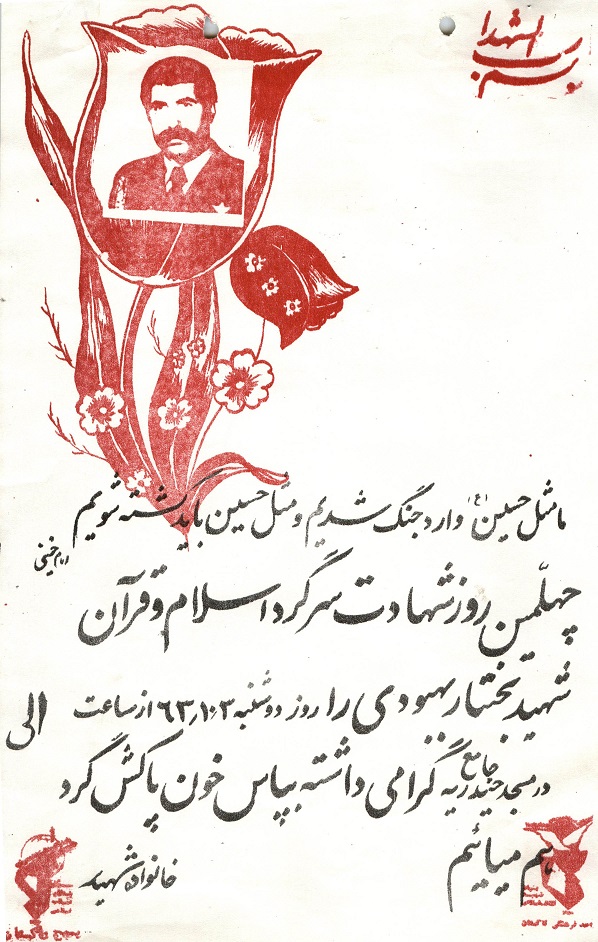 بسم رب الشهدا
ما مثل حسین (ع) وارد جنگ شدیم و مثل حسین باید کشته شویم
امام خمینی
چهلّمین روز شهادت سرگرد اسلام و قرآن
شهید بختیار بهبودی را روز دوشنبه ۶۳٫۱۰٫۳ از ساعت الی
در مسجد جامع حیدریه گرامی داشته بپاس خون پاکش گرد
هم میائیم
خانواده شهید
بسیج تاکستان